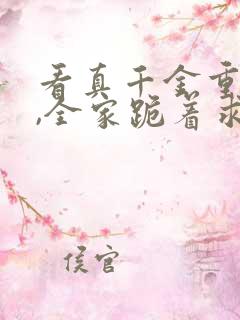 看真千金重
,全家跪着求
侯官